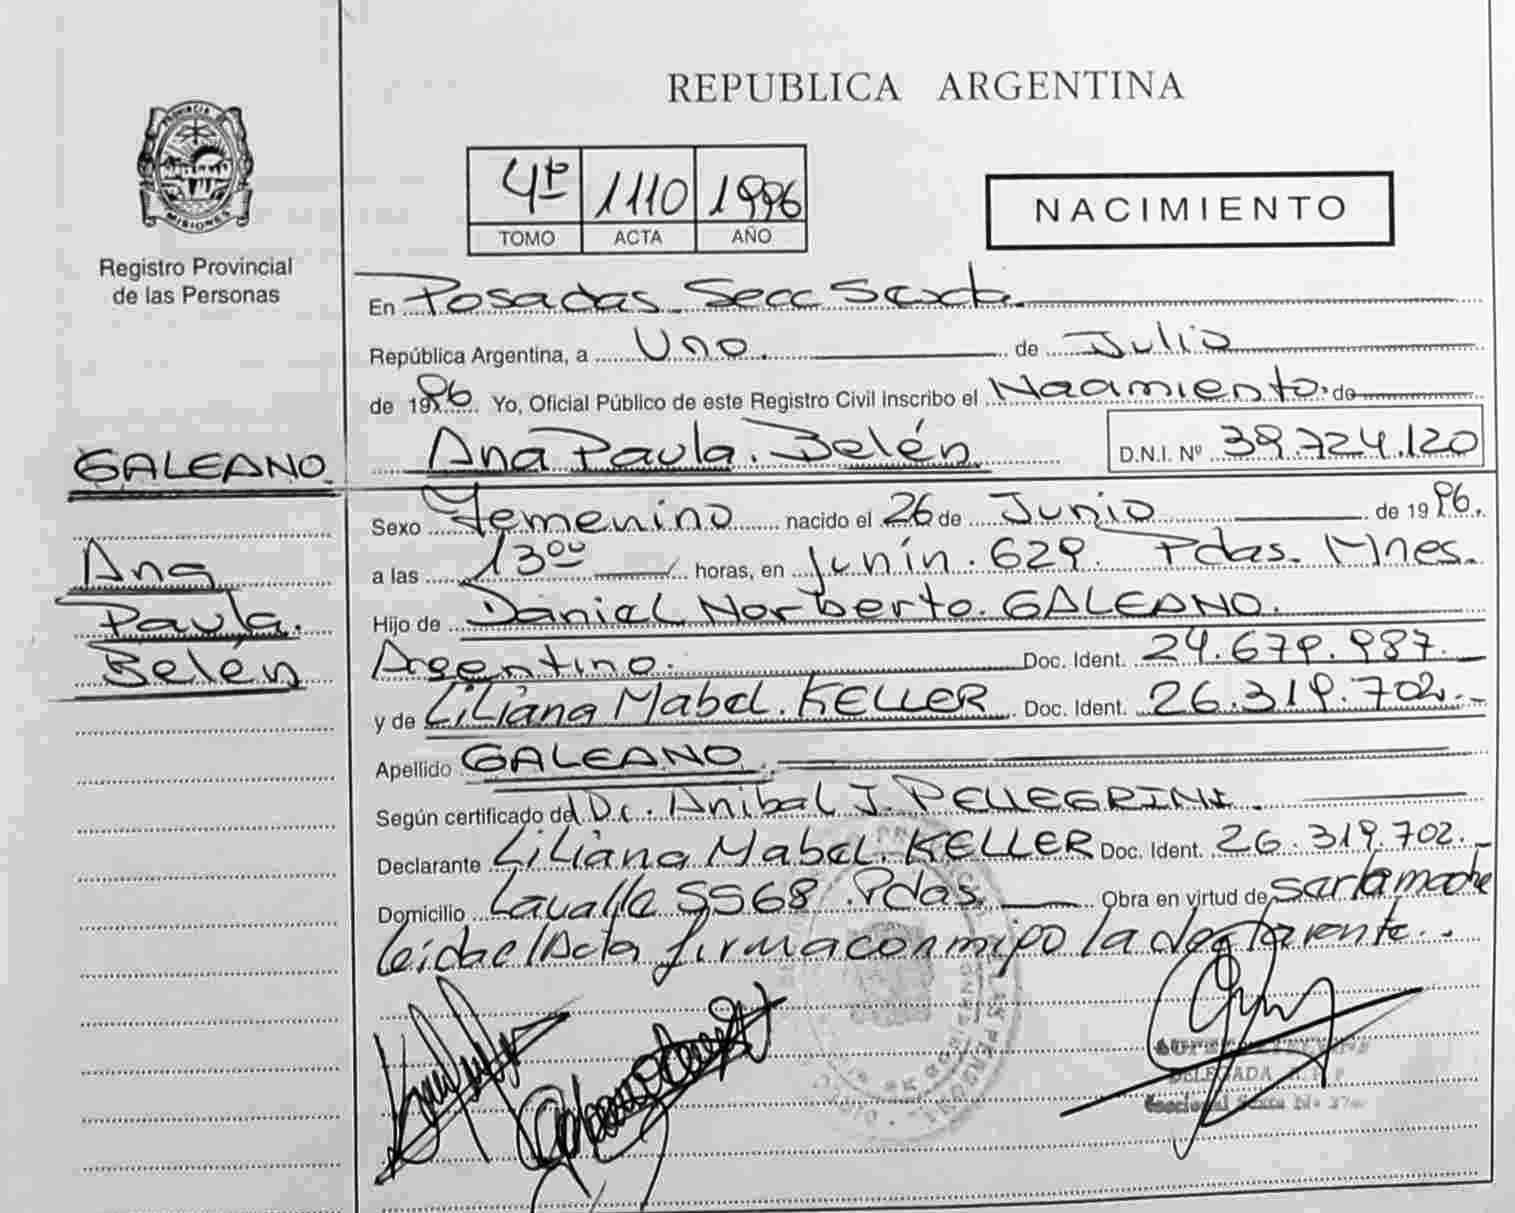 REPUBLICA ARGENTINA
PROVINCIA DE
MISIONES
Registro Provincial
de las Personas
4º 1110 1996
TOMO ACTA AÑO
NACIMIENTO
En Posadas Secc Sexta
República Argentina, a Uno. de Julio
de 1996 Yo, Oficial Público de este Registro Civil inscribo el Nacimiento. de
Ana Paula. Belén D.N.I. Nº 39.724.120
GALEANO
Ana
Paula.
Belén
Sexo Femenino nacido el 26 de Junio de 1996.
a las 13 00 horas, en Junín. 629. Pdas. Mnes.
Hijo de Daniel Norberto. GALEANO.
Argentino. Doc. Ident. 24.679.987.
y de Liliana Mabel. KELLER Doc. Ident. 26.319.702.
Apellido GALEANO
Según certificado del Dr. Anibal J. PELLEGRINI.
Declarante Liliana Mabel. KELLER Doc. Ident. 26.319.702.
Domicilio Lavalle 5568. Pdas. Obra en virtud de ser la madre
leida el Acta firma conmigo la declarante.
DELEGADA R.P.P
Seccional Sexta